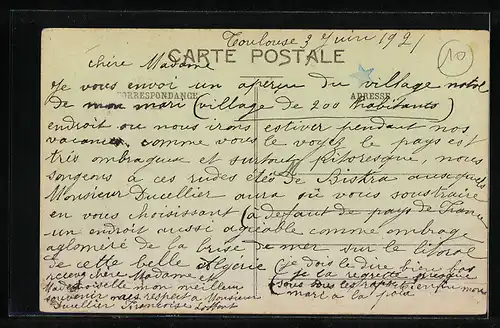 Toulouse 3 Juin 1921
10
chère Madame
CARTE POSTALE
CORRESPONDANCE ADRESSE
Je vous envoi un aperçu du village natal
de mon mari (village de 200 habitants)
endroit ou nous irons estiver pendant nos
vacances comme vous le voyez le pays est
très ombrageux et surtout pitoresque, nous
songeons à ces rudes étés de Biskra auxquels
Monsieur Ducellier aura où vous soustraire
en vous choisissant (à defaut de pays de France
un endroit aussi agréable comme ombrage
agloméré de la brise de mer sur le litoral
de cette belle Algérie (je dois le dire bien bas
recevez chère Madame et je la regrette
Mademoiselle mon meilleur sous tous les rapports bien que mon
souvenir respect à Monsieur mari a la
Ducellier Françoise